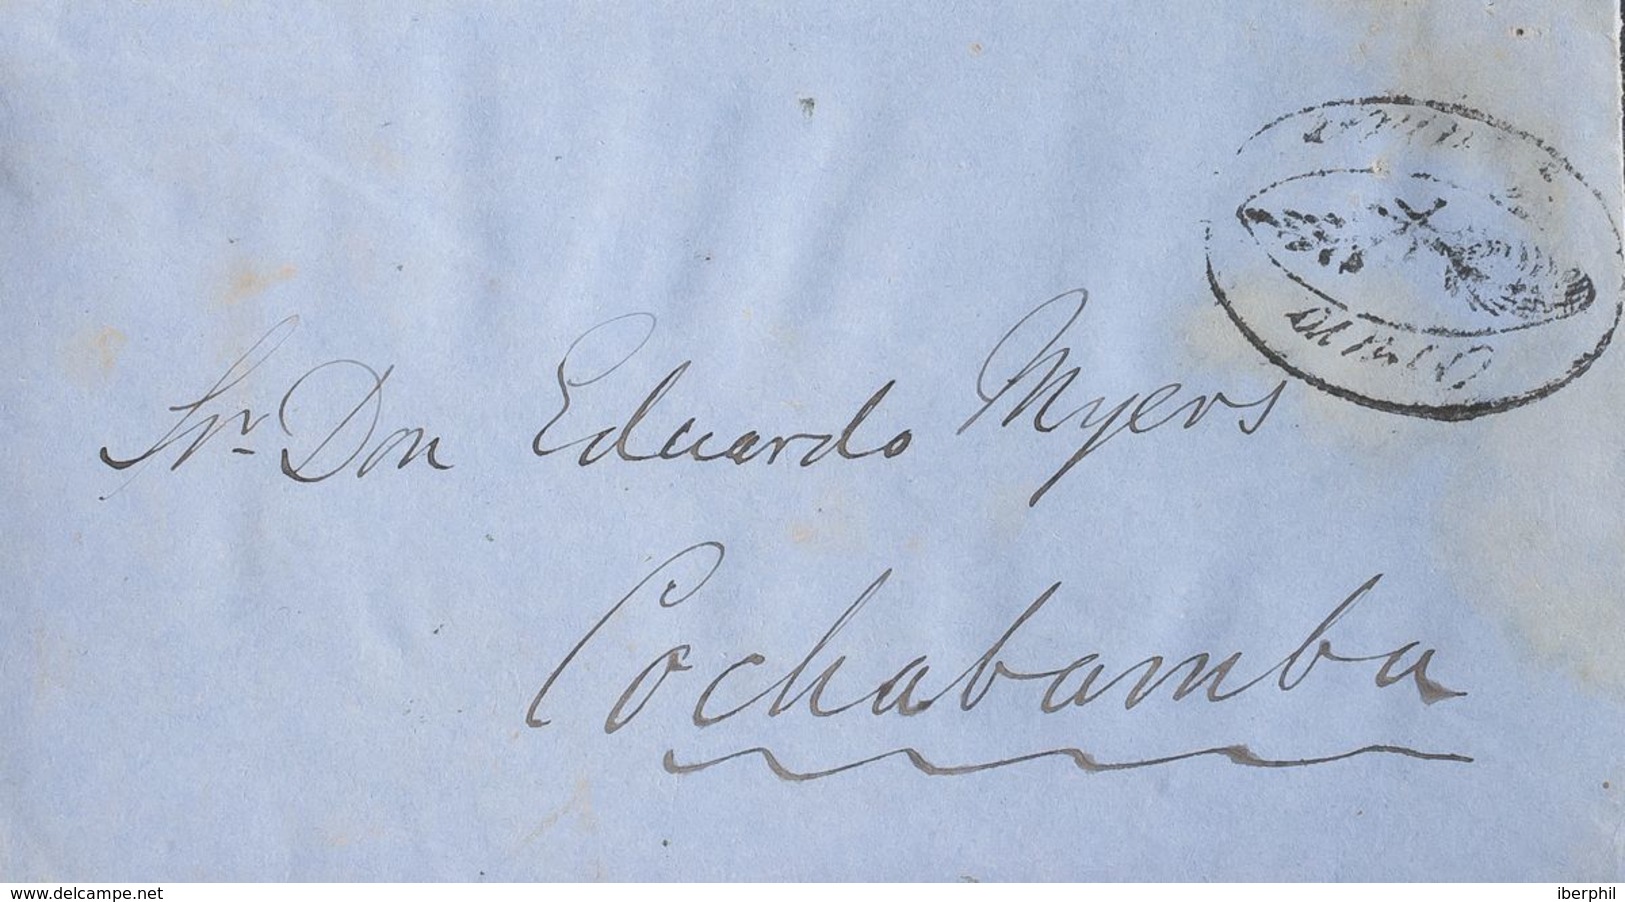 Sr. Don Eduardo Myers
Cochabamba
www.delcampe.net
iberphil